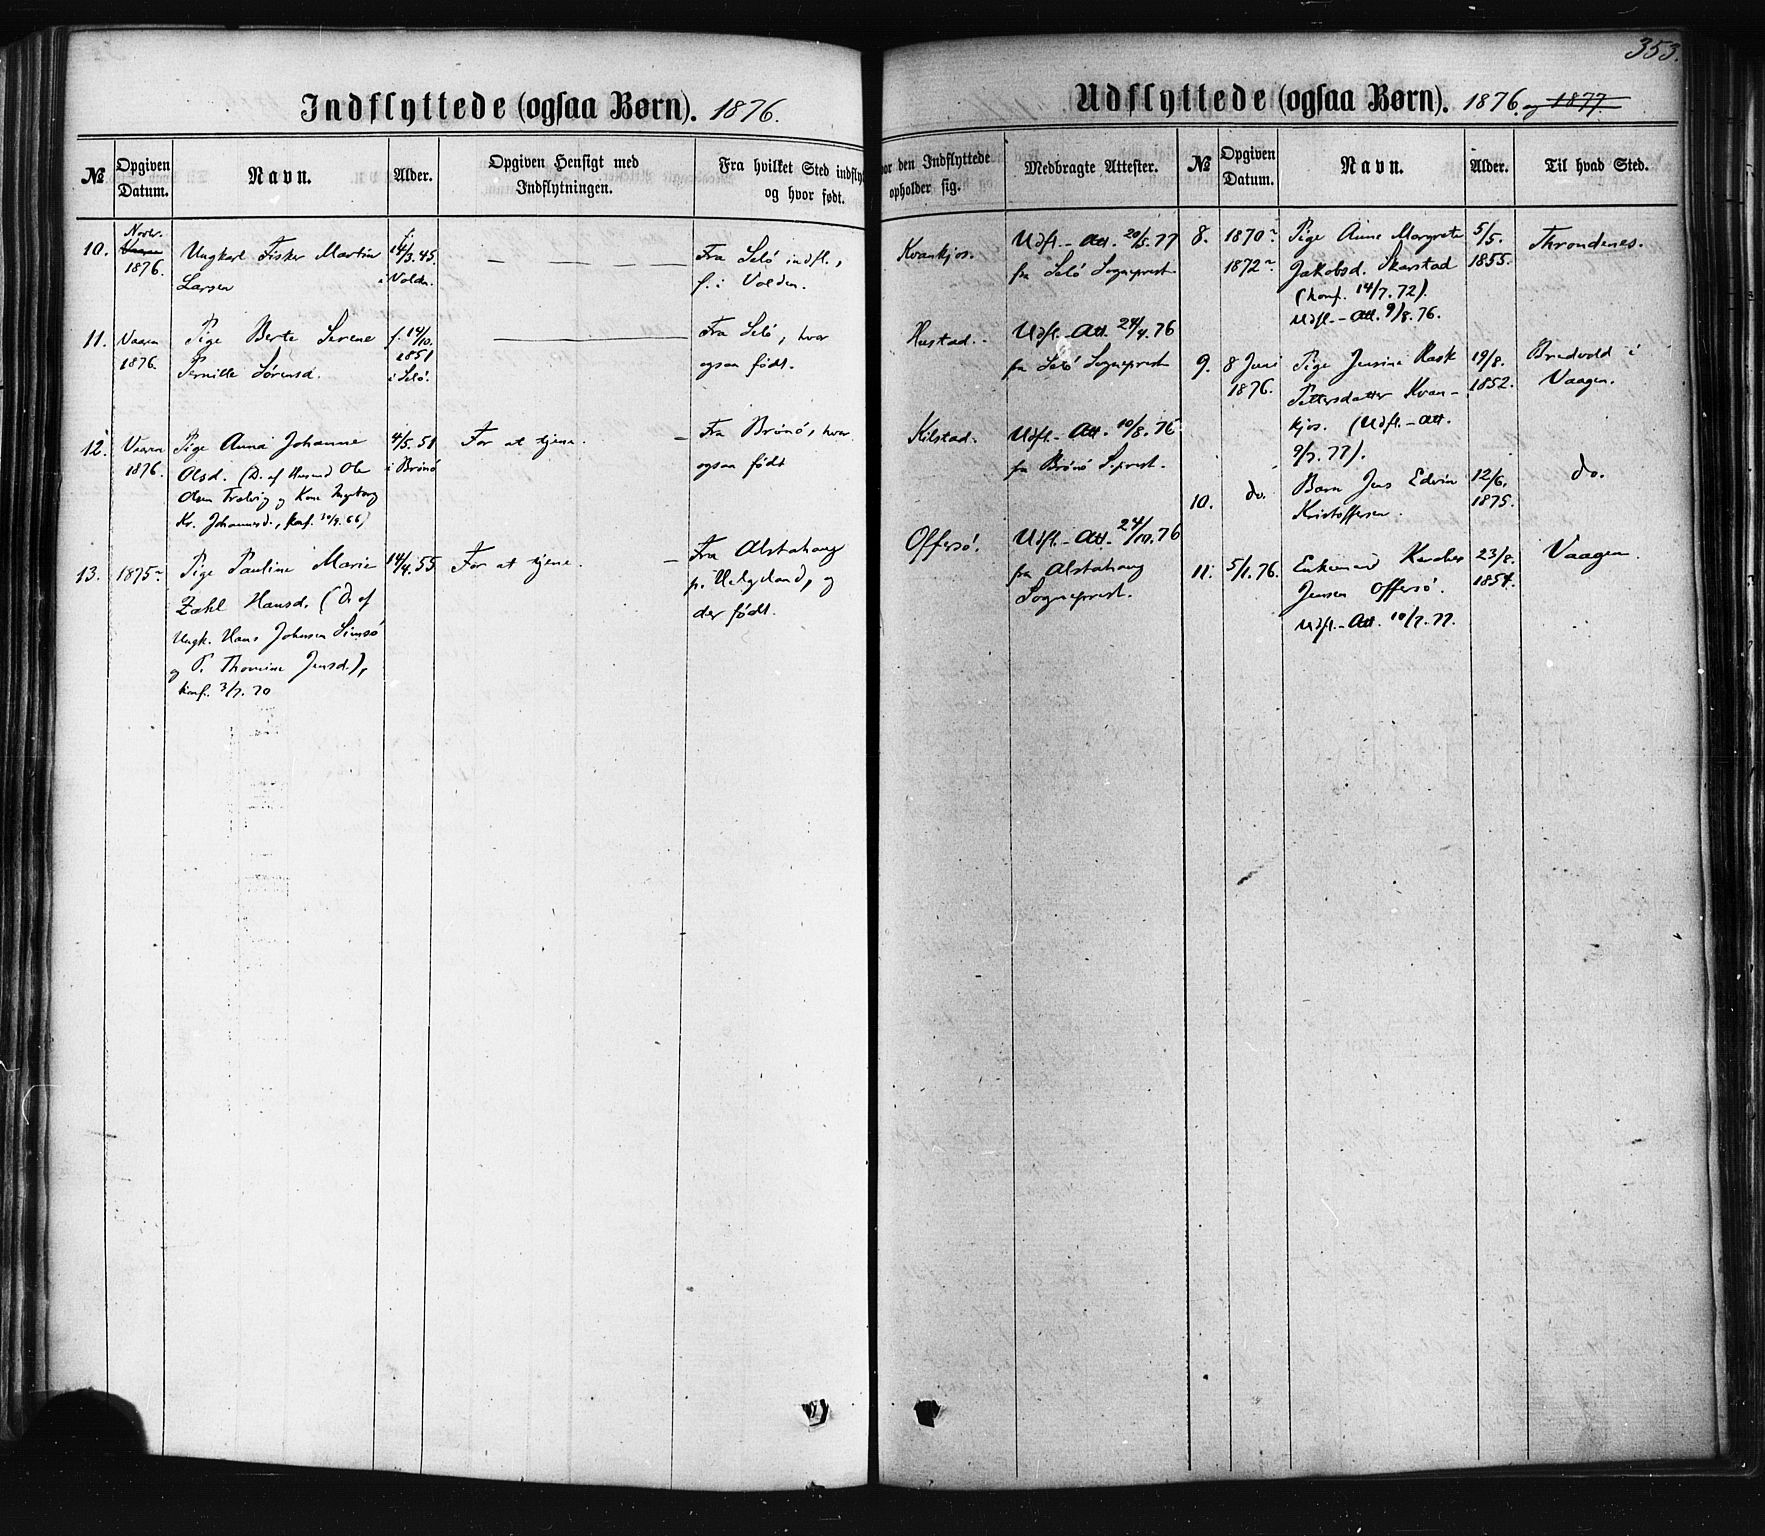 353.
Indflyttede (ogsaa Børn). 1876.
№
Opgiven Datum.
Navn.
Alder.
Opgiven Hensigt med
Indflytningen.
Fra hvilket Sted indfly
og hvor født.
10.
Novbr.
Vaaren
1876.
Ungkarl Fisker Martin
Larsen
f.
14/3.45.
i Volden.
Fra Selö indfl.,
f. i Volden.
11.
Vaaren
1876.
Pige Berte Serene
Pernille Sörensd.
f. 14/10.
1851
i Selö.
Fra Selö, hvor
ogsaa födt.
12.
Vaaren
1876.
Pige Anna Johanne
Olsd. (D. af Husmd Ole
Olsen Trælvig og Kone Ingeborg
Kr. Johannesd., konf. 30/9.66)
4/5.51
i Brönö
For at tjene.
Fra Brönö, hvor
ogsaa födt
13.
1875
Pige Pauline Marie
Zahl Hansd. (D. af
Ungk. Hans Johnsen
og P. Thomine Jensd.),
konf. 3/7.70
14/4.55
For at tjene.
Fra Alstahaug
p. Helgeland, og
der födt.
Udflyttede (ogsaa Børn). 1876. og 1877.
or den Indflyttede
opholder sig.
Medbragte Attester.
№
Opgiven
Datum.
Navn.
Alder.
Til hvad Sted.
Kvankjos.
Udfl.-Att. 20/5.77
fra Selö Sogneprest
Hustad.
Udfl.-Att. 24/4.76
fra Selö Sogneprest
Kilstad.
Udfl.-Att. 10/8.76
fra Brönö S.prest.
Offersö.
Udfl.-Att. 24/10.76
fra Alstahaug
Sogneprest.
8.
1870
1872
Pige Anne Margrete
Jakobsd. Skarstad
(konf. 14/7.72).
Udfl.-Att. 9/8.76.
5/5.
1855.
Throndenes.
9.
8 Juni
1876.
Pige Jensine Rask
Pettersdatter Kvan-
kjos. (Udfl.-Att.
9/7.77).
19/8.
1852.
Bredvold i
Vaagen.
10.
do.
Barn Jens Edvin
Kristoffersen.
12/6.
1875.
do.
11.
5/1.76.
Enkemand
Jensen Offersö.
Udfl.-Att. 10/7.77.
23/8.
1854.
Vaagen.